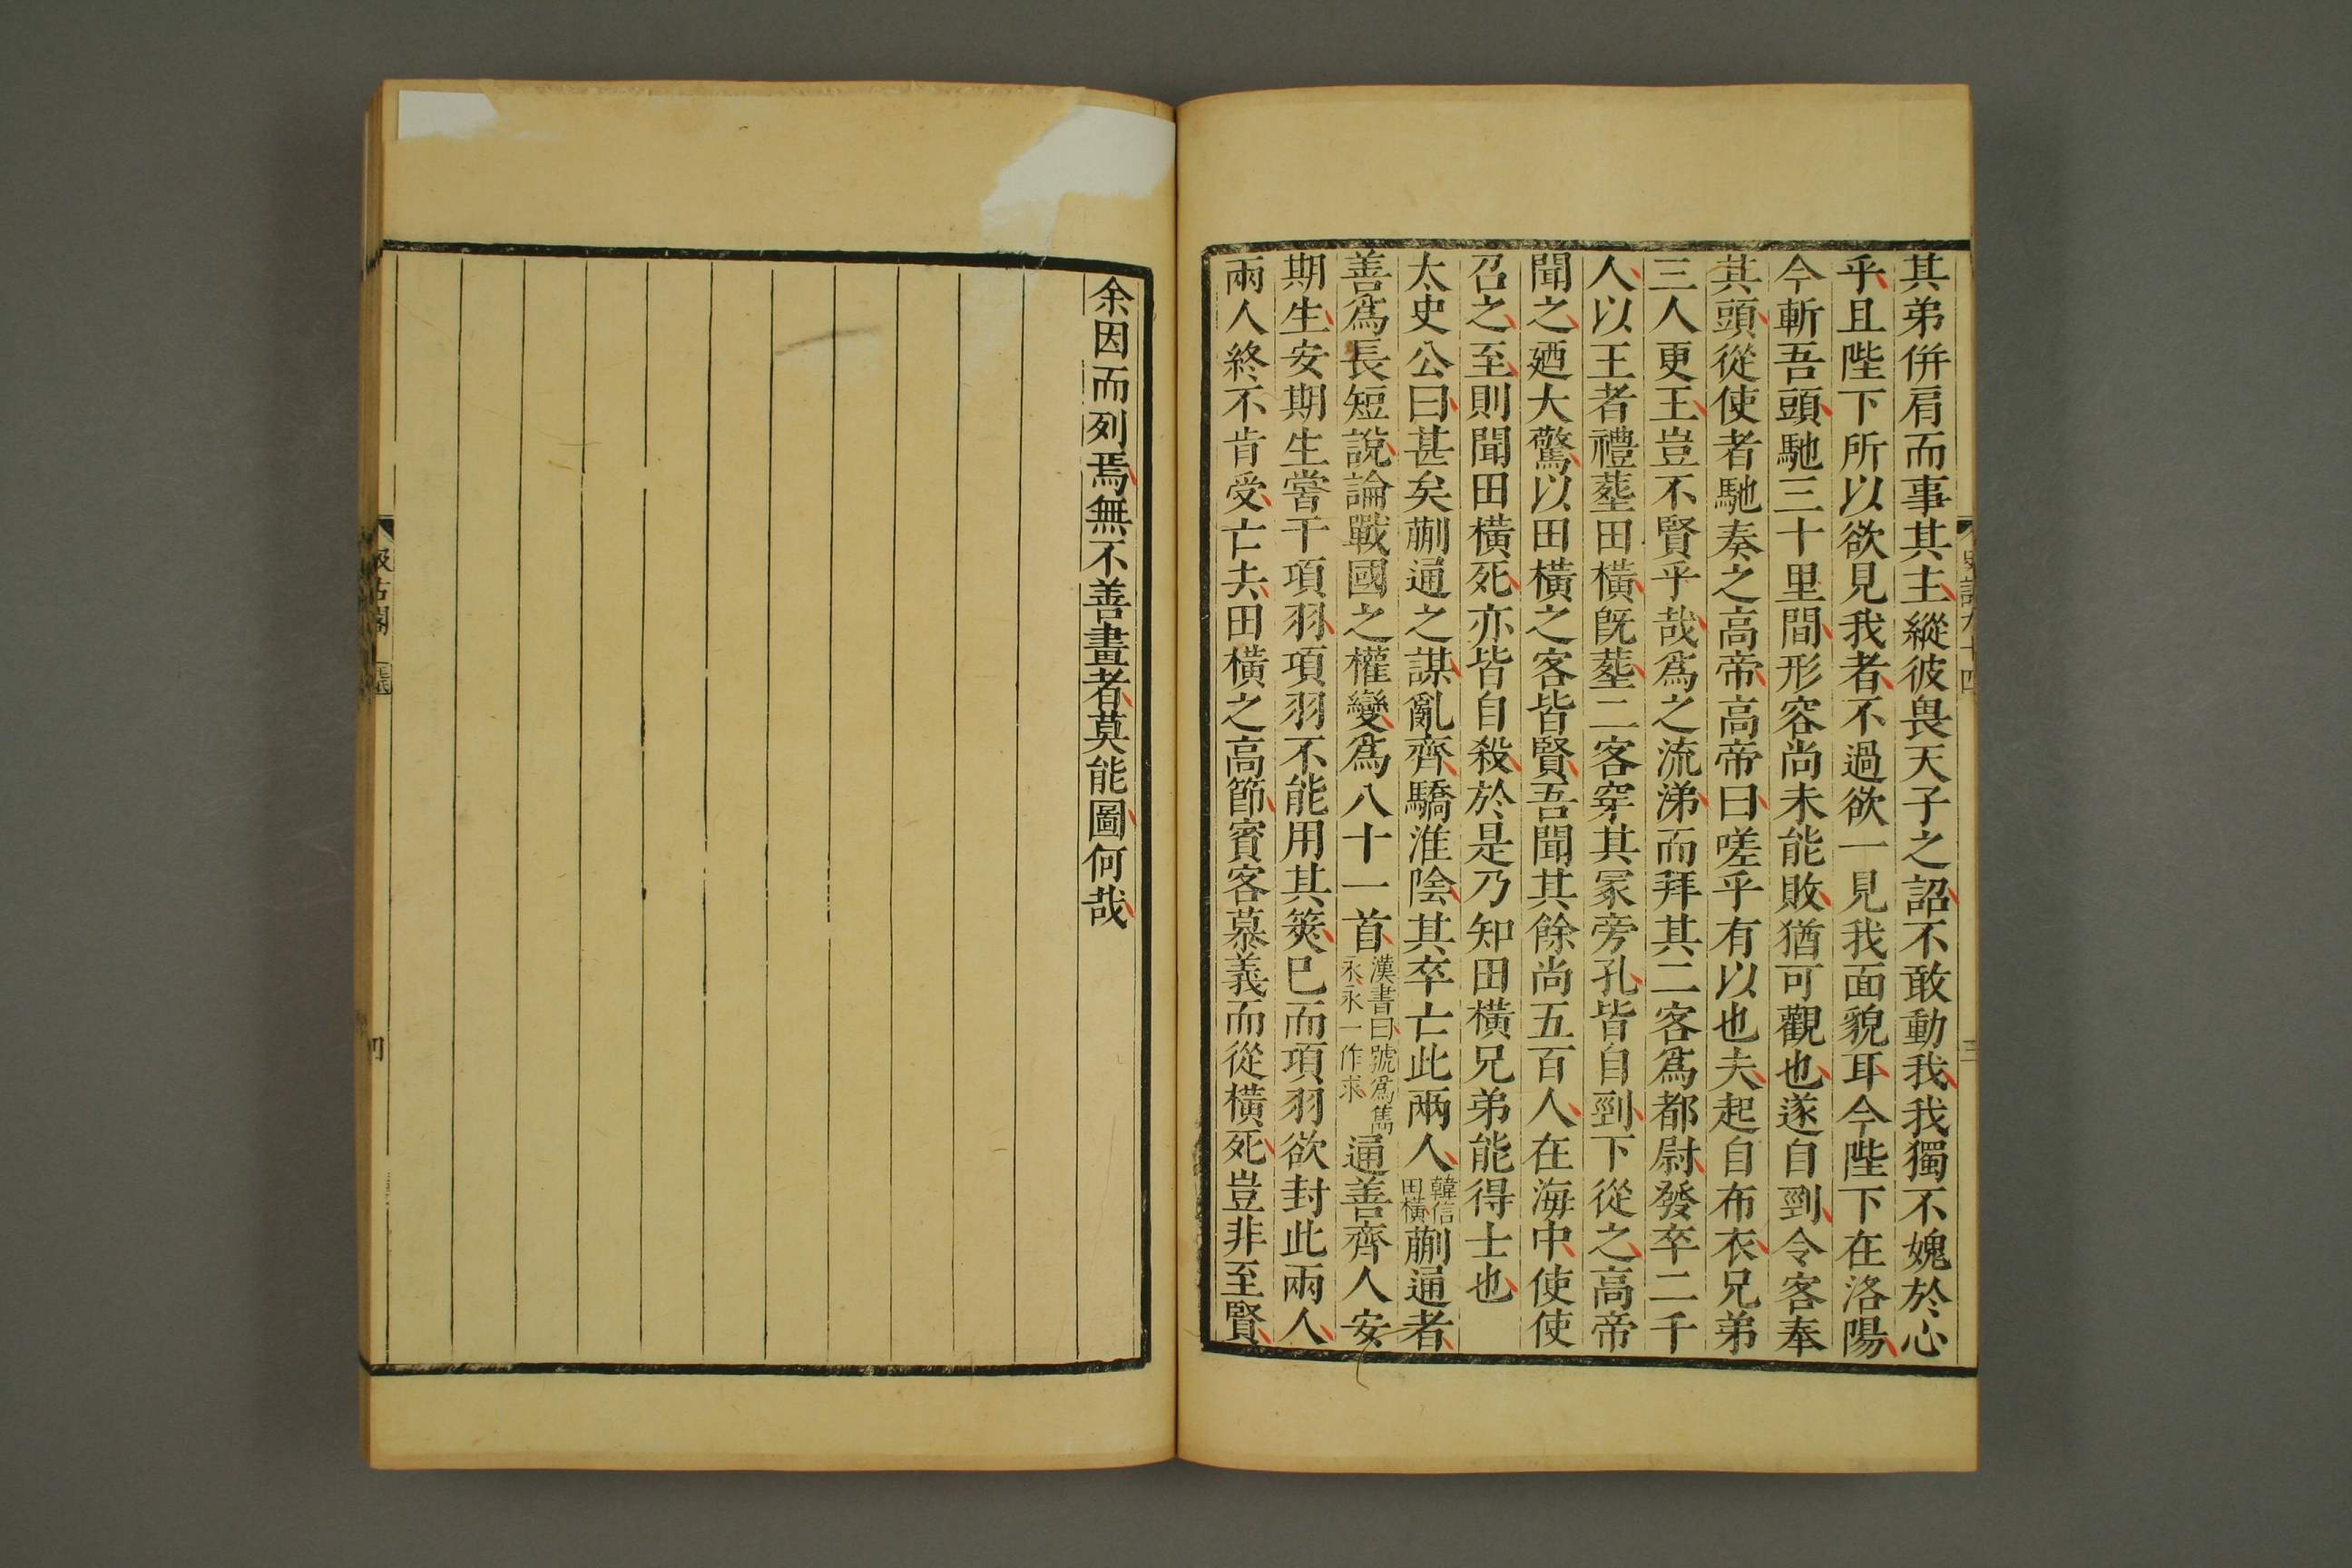 其弟併肩而事其主縱彼畏天子之詔不敢動我我獨不媿於心
乎且陛下所以欲見我者不過欲一見我面貌耳今陛下在洛陽
今斬吾頭馳三十里間形容尚未能敗猶可觀也遂自剄令客奉
其頭從使者馳奏之高帝高帝曰嗟乎有以也夫起自布衣兄弟
三人更王豈不賢乎哉爲之流涕而拜其二客爲都尉發卒二千
人以王者禮塟田橫旣塟二客穿其冢旁孔皆自剄下從之高帝
聞之廼大驚以田橫之客皆賢吾聞其餘尚五百人在海中使使
召之至則聞田橫死亦皆自殺於是乃知田橫兄弟能得士也
太史公曰甚矣蒯通之謀亂齊驕淮陰其卒亡此兩人韓信田橫蒯通者
善爲長短說論戰國之權變爲八十一首漢書曰號爲雋永永一作求通善齊人安
期生安期生嘗干項羽項羽不能用其筴巳而項羽欲封此兩人
兩人終不肯受亡去田橫之高節賓客慕義而從橫死豈非至賢
余因而列焉無不善畫者莫能圖何哉